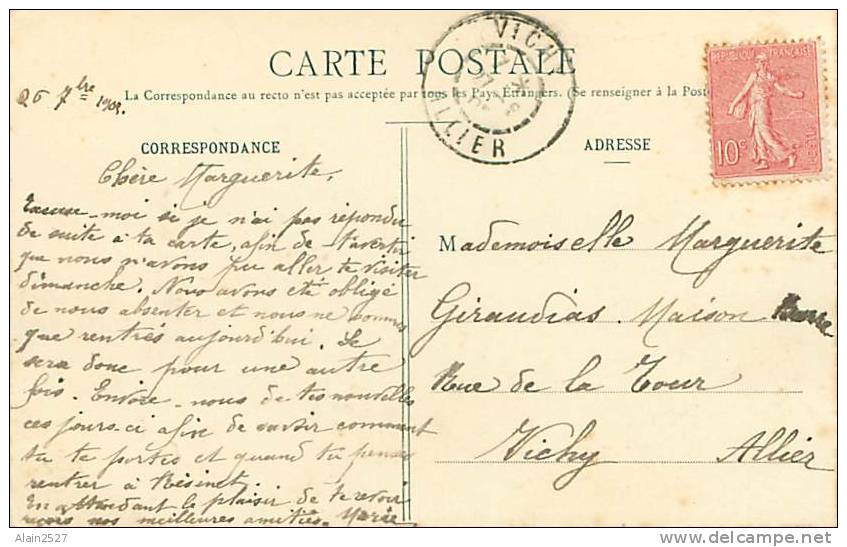 CARTE POSTALE
La Correspondance au recto n'est pas acceptée par tous les Pays Étrangers. (Se renseigner à la Poste
26 7bre 1905.
VICHY
ALLIER
REPUBLIQUE FRANÇAISE
10c
CORRESPONDANCE
Chère Marguerite,
Excuse-moi si je n'ai pas répondu
de suite à ta carte, afin de t'avertir
que nous n'avons pu aller te visiter
dimanche. Nous avons été obligé
de nous absenter et nous ne sommes
que rentrés aujourd'hui. Ce
sera donc pour une autre
fois. Envoie-nous de tes nouvelles
ces jours-ci afin de savoir comment
tu te portes et quand tu penses
rentrer à Bésinet.
En attendant le plaisir de te revoir
reçois nos meilleures amitiés. Marie
ADRESSE
Mademoiselle Marguerite
Giraudias. Maison
Rue de la Tour
Vichy Allier
Alain2527
www.delcampe.net